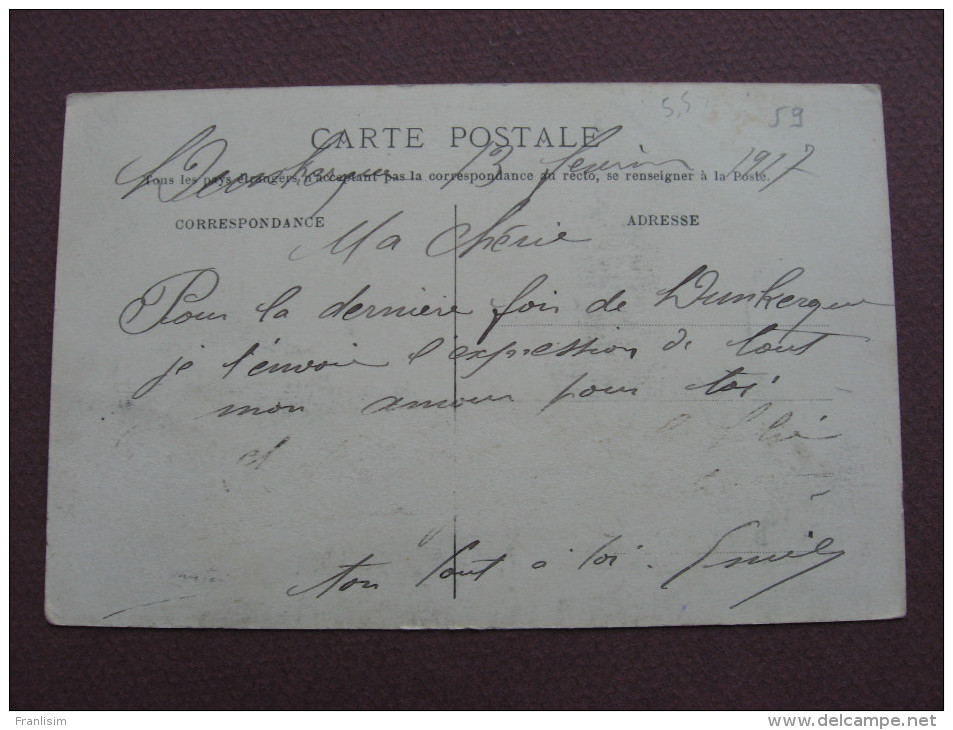 5,5 59
CARTE POSTALE
Dunkerque 13 février 1917
Tous les pays étrangers n'acceptant pas la correspondance au recto, se renseigner à la Poste.
CORRESPONDANCE ADRESSE
Ma Chérie
Pour la dernière fois de Dunkerque
je t'envoie l'expression de tout
mon amour pour toi
et
ton tout à toi. Emile
Franlisim
www.delcampe.net